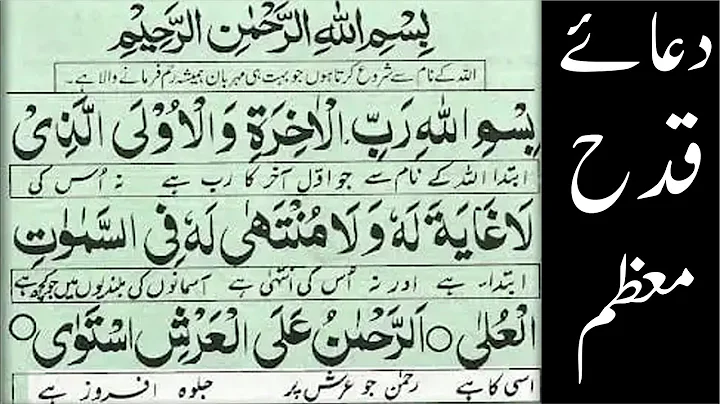 بِسْمِ اللهِ الرَّحْمٰنِ الرَّحِيْمِ
اللہ کے نام سے شروع کرتا ہوں جو بہت ہی مہربان ہمیشہ رحم فرمانے والا ہے۔
بِسْمِ اللهِ رَبِّ الْاٰخِرَةِ وَالْاُوْلَى الَّذِىْ
ابتدا اللہ کے نام سے جو اوّل آخر کا رب ہے نہ اُس کی
لَا غَايَةَ لَهٗ وَلَا مُنْتَهٰى لَهٗ فِى السَّمٰوٰتِ
ابتدا ہے اور نہ اُس کی انتہٰی ہے آسمانوں کی بلندیوں میں جو کچھ ہے
الْعُلٰى ○ اَلرَّحْمٰنُ عَلَى الْعَرْشِ اسْتَوٰى ○
اسی کا ہے رحمٰن جو عرش پر جلوہ افروز ہے
دعائے
قدح
معظم